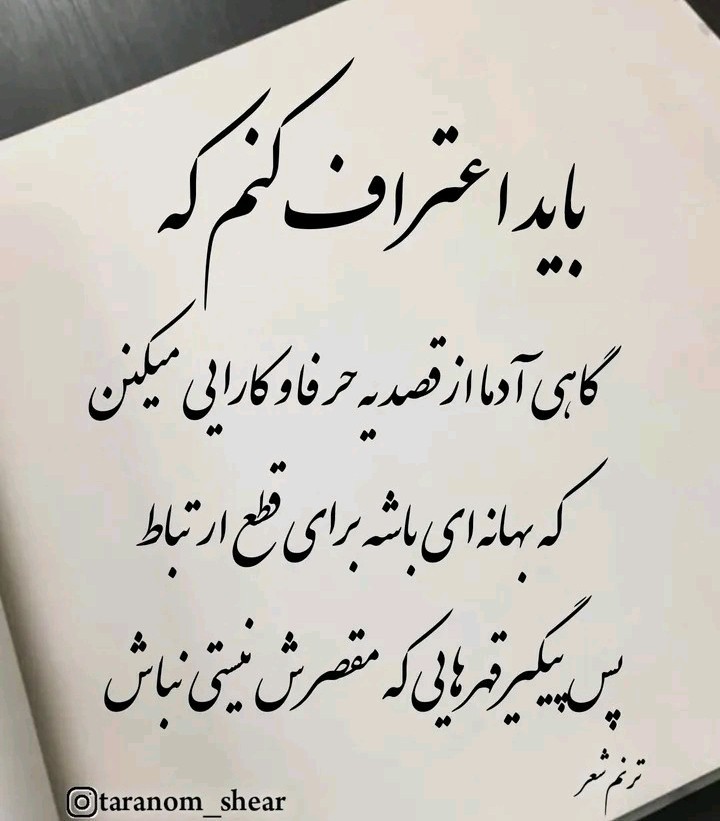 باید اعتراف کنم که
گاهی آدما از قصد یه حرفا و کارایی میکنن
که بهانه ای باشه برای قطع ارتباط
پس پیگیر قهرهایی که مقصرش نیستی نباش
ترنم شعر
taranom_shear